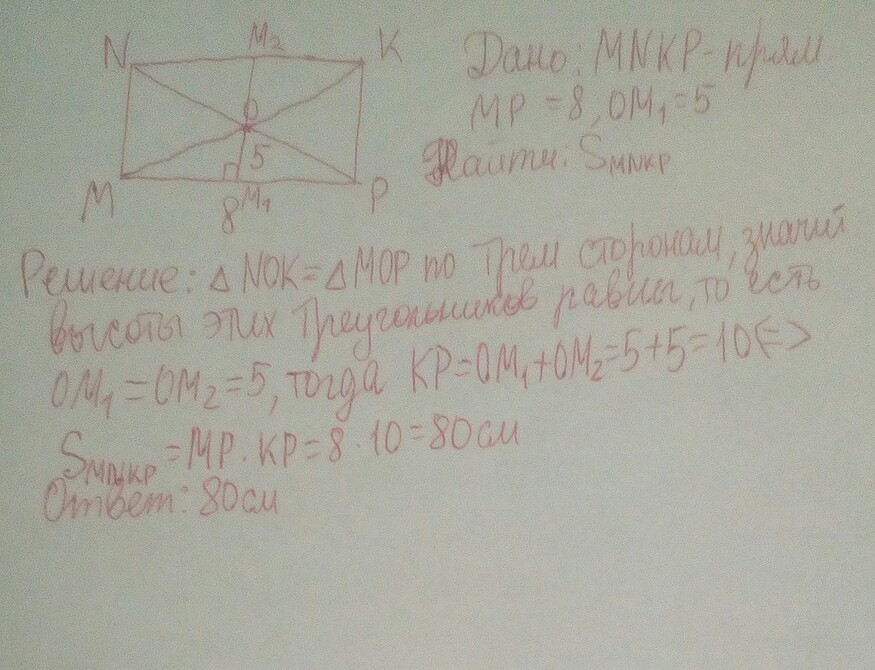 N M₂ K
O
5
M 8 M₁ P
Дано: MNKP - прям
MP = 8, OM₁ = 5
Найти: S_MNKP
Решение: △ NOK = △ MOP по трем сторонам, значит
высоты этих треугольников равны, то есть
OM₁ = OM₂ = 5, тогда KP = OM₁ + OM₂ = 5 + 5 = 10 (=>
S_MNKP = MP · KP = 8 · 10 = 80 см
Ответ: 80 см